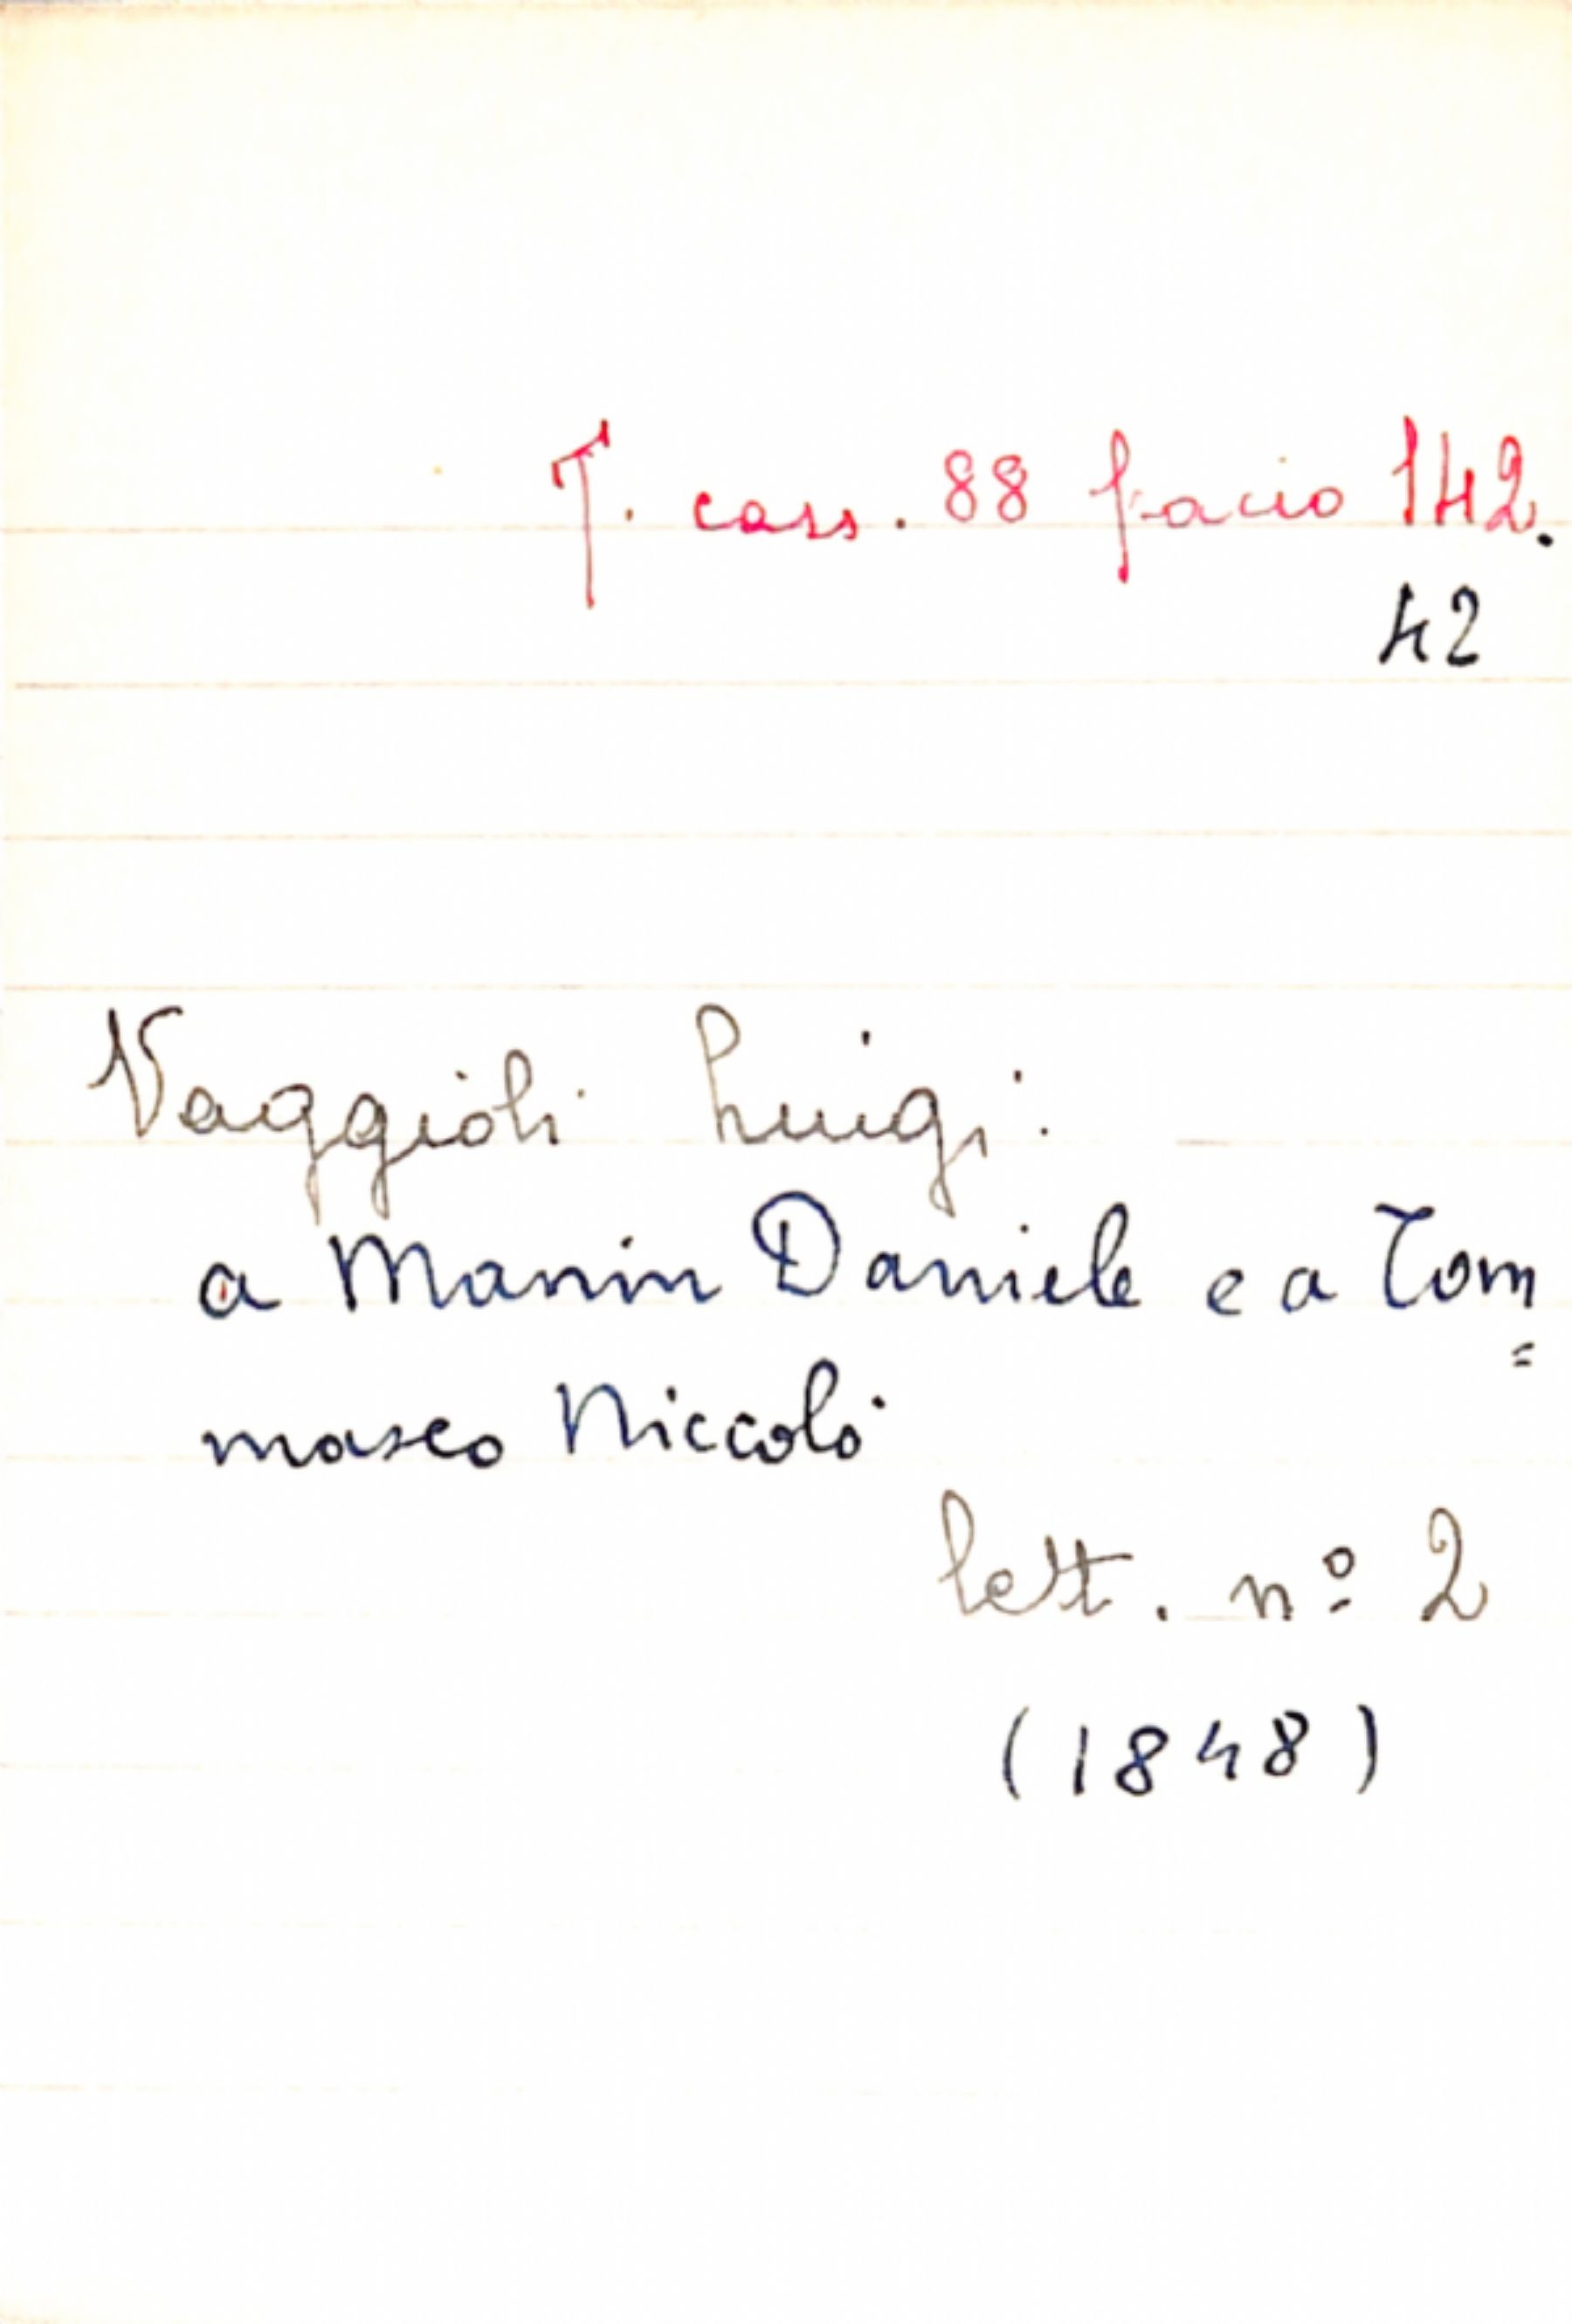 T. cass. 88 facio 142.
42
Vaggioli Luigi:
a Manin Daniele e a Tom
=
maseo Niccolò
lett. nº 2
(1848)